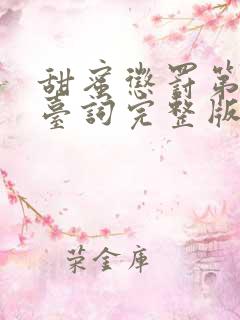 甜蜜懲罰第
臺詞完整版
荣金库